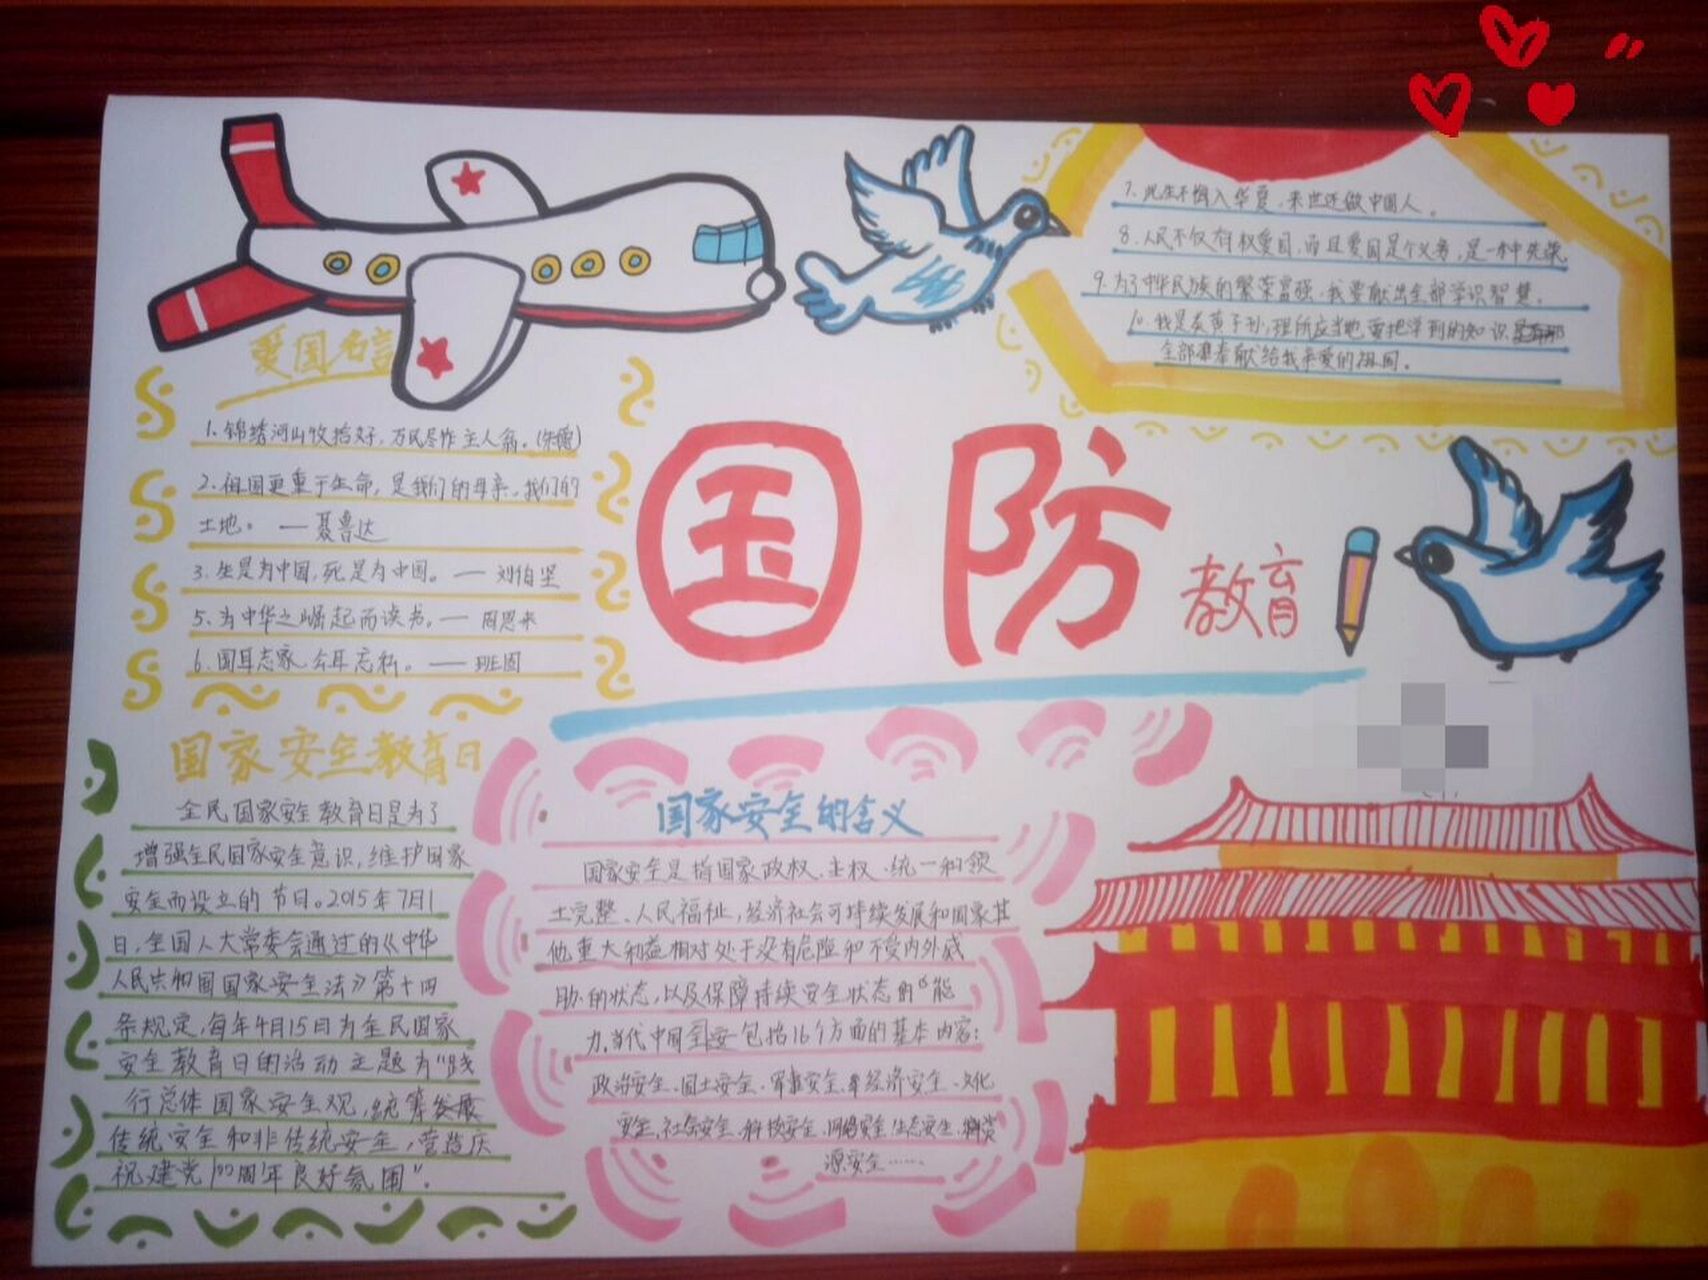 爱国名言
1、锦绣河山收拾好,万民尽作主人翁。(朱德)
2、祖国更重于生命,是我们的母亲,我们的
土地。—聂鲁达
3、生是为中国,死是为中国。—刘伯坚
5、为中华之崛起而读书。—周恩来
6、国耳忘家,公耳忘私。——班固
国防
教育
7、此生不悔入华夏,来世还做中国人。
8、人民不仅有权爱国,而且爱国是个义务,是一种光荣
9、为了中华民族的繁荣富强,我要献出全部学识智慧。
10、我是炎黄子孙,理所应当地要把学到的知识
全部奉献给我亲爱的祖国。
国家安全教育日
全民国家安全教育日是为了
增强全民国家安全意识,维护国家
安全而设立的节日。2015年7月1
日,全国人大常委会通过的《中华
人民共和国国家安全法》第十四
条规定,每年4月15日为全民国家
安全教育日的活动主题为“践
行总体国家安全观,统筹发展
传统安全和非传统安全,营造庆
祝建党100周年良好氛围”.
国家安全的含义
国家安全是指国家政权、主权、统一和领
土完整、人民福祉,经济社会可持续发展和国家其
他重大利益相对处于没有危险和不受内外威
胁的状态,以及保障持续安全状态的“能
力.当代中国国安包括16个方面的基本内容:
政治安全、国土安全、军事安全、经济安全、文化
安全、社会安全、科技安全、网络安全、生态安全、资
源安全……